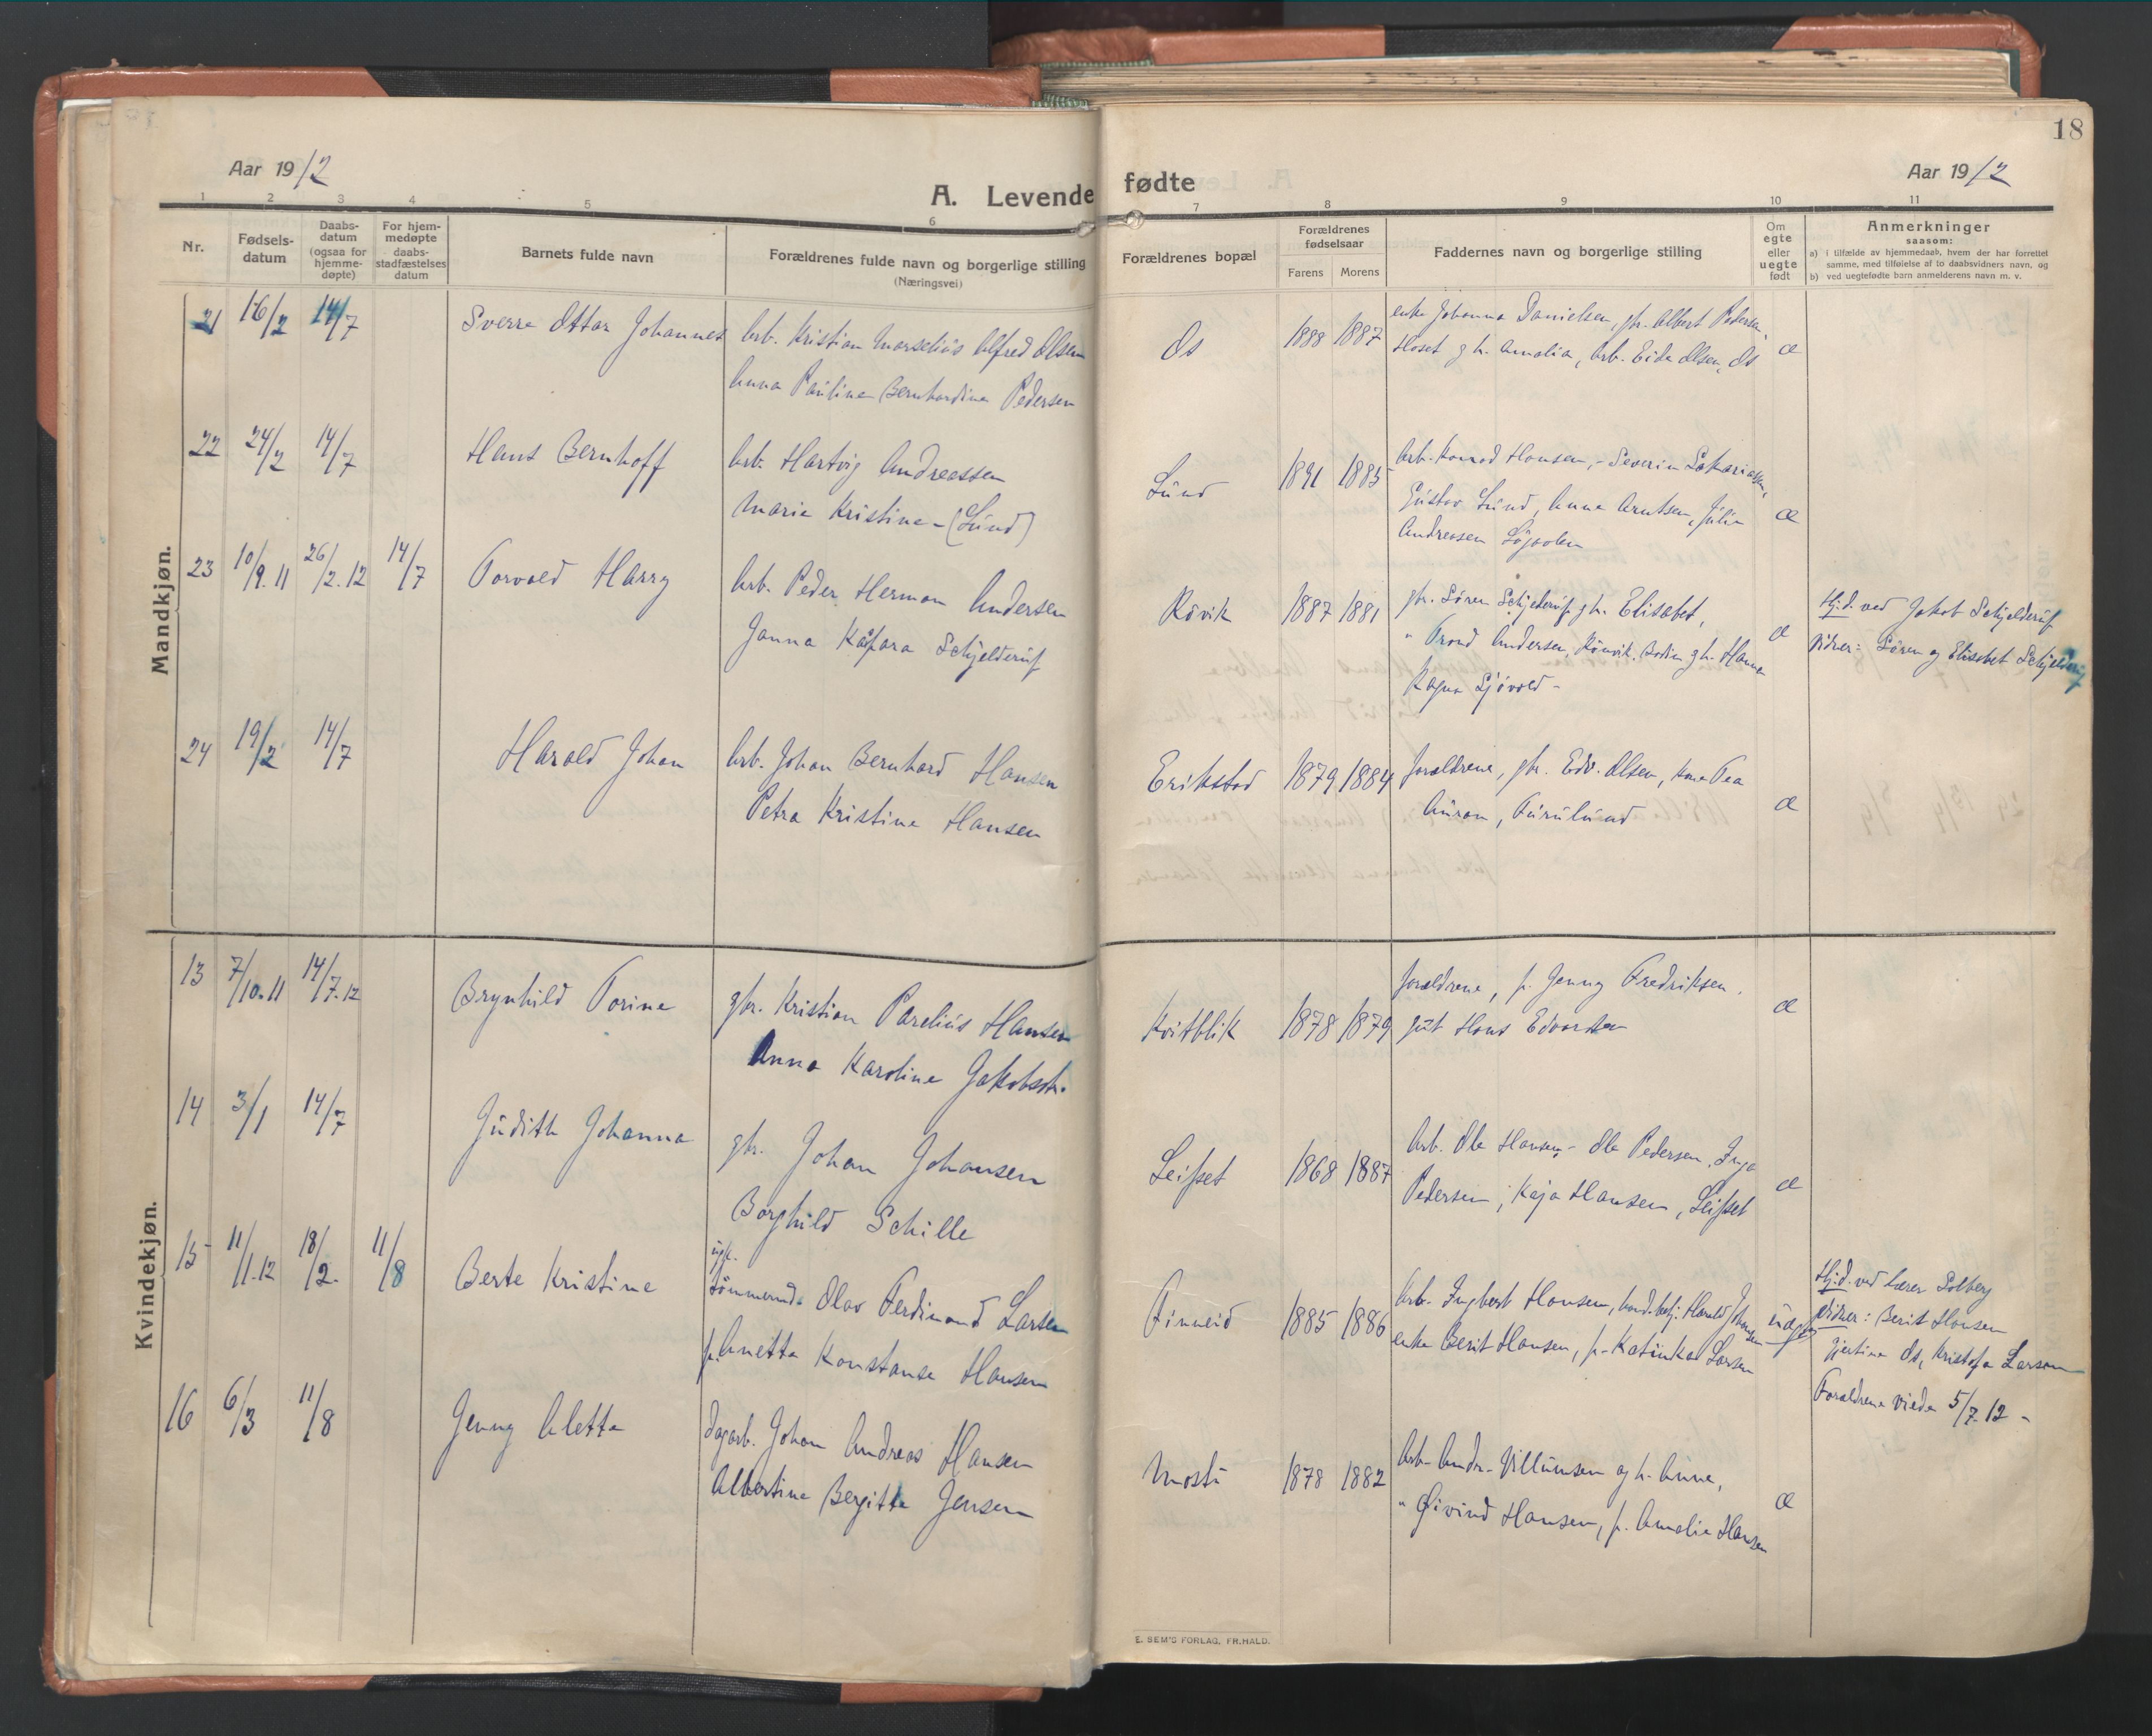 18
Aar 1912
A. Levende fødte
Aar 1912
1 2 3 4 5 6 7 8 9 10 11
Nr.
Fødsels-
datum
Daabs-
datum
(ogsaa for
hjemme-
døpte)
For hjem-
medøpte
daabs-
stadfæstelses
datum
Barnets fulde navn
Forældrenes fulde navn og borgerlige stilling
(Næringsvei)
Forældrenes bopæl
Forældrenes
fødselsaar
Farens Morens
Faddernes navn og borgerlige stilling
Om
egte
eller
uegte
født
Anmerkninger
saasom:
a) i tilfælde av hjemmedaab, hvem der har forrettet
samme, med tilføielse af to daabsvidners navn, og
b) ved uegtefødte barn anmelderens navn m. v.
Mandkjøn.
21 16/2 14/7 Sverre Ottar Johannes
Arb. Kristian Marselius Alfred Olsen
Anna Pauline Bernhardine Pedersen
Os 1888 1887
enke Johanna Danielsen, gbr. Albert Pedersen
Hoset g h. Amalia, Arb. Eide Olsen, Os
æ
22 24/2 14/7 Hans Bernhoff
Arb. Hartvig Andreassen
Marie Kristine - (Lund)
Lund 1891 1885
Arb. Konrad Hansen, - Severin Sakariassen,
Gustav Lund, Anna Arntsen, Julie
Andreasen
æ
23 10/9.11 26/2.12 14/7 Torvald Harry
Arb. Peder Herman Andersen
Janna Kaspara Schjelderup
Røvik 1887 1881
gbr. Sören Schjelderup g h. Elisabet,
" Trond Andersen, Rönvik, Bodin g h. Hanna
Ragna Sjövold -
æ
Hj.d. ved Jakob Schjelderup
Vidner: Sören og Elisabet Schjelderup
24 19/2 14/7 Harald Johan
Arb. Johan Bernhard Hansen
Petra Kristine Hansen
Erikstad 1879 1884
forældrene, gbr. Edv. Olsen, kone Tea
Furulund
æ
Kvindekjøn.
13 7/10.11 14/7.12 Brynhild Torine
gbr. Kristian Parelius Hansen
Anna Karoline Jakobsdtr.
Kvitblik 1878 1879
forældrene, p. Jenny Fredriksen,
gut Hans Edvardsen
æ
14 3/1 14/7 Judith Johanna
gbr. Johan Johansen
Borghild Schille
Leifset 1868 1887
Arb. Ole Hansen, - Ole Pedersen, Inga
Pedersen, Kaja Hansen, Leifset
æ
15 11/1.12 18/2. 11/8 Berte Kristine
ugk.
tömmermd. Olav Ferdinand Larsen
p. Anetta Konstanse Hansen
Finneid 1885 1886
Arb. Ingbert Hansen, hand.betj. Harald Johansen
enke Berit Hansen, p. Katinka Larsen
uægte
Hj.d. ved Lærer Solberg
Vidner: Berit Hansen
Gjertine Os, Kristofa Larsen
Forældrene viede 5/7.12 -
16 6/3 11/8 Jenny Aletta
dagarb. Johan Andreas Hansen
Albertine Bergitte Jensen
Mostu 1878 1882
Arb. Andr. Villumsen og h. Anna,
" Øivind Hansen, p. Amalie Hansen
æ
E. SEM'S FORLAG, FR.HALD.